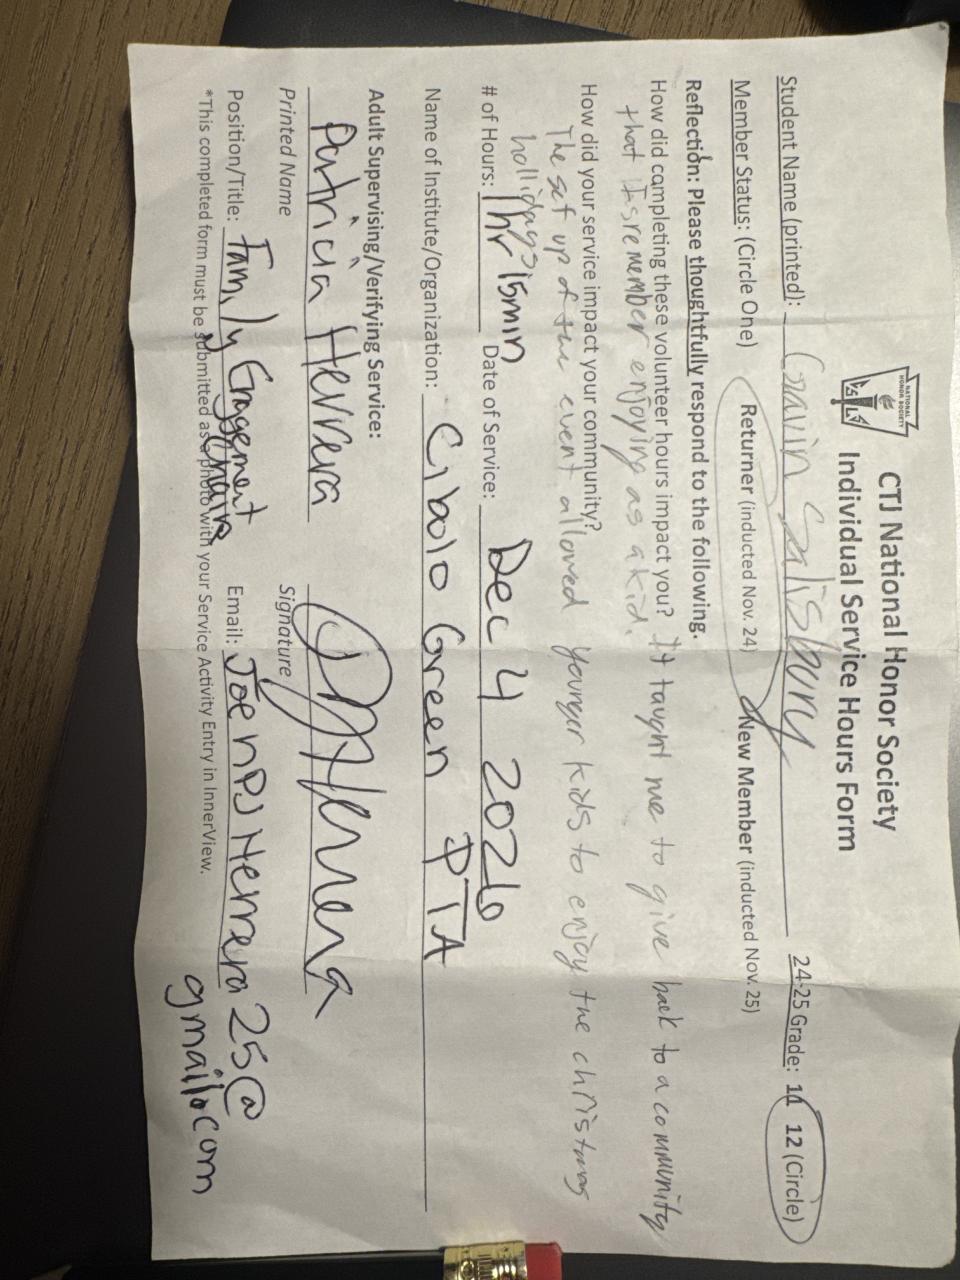 NATIONAL
HONOR SOCIETY
CTJ National Honor Society
Individual Service Hours Form
Student Name (printted): Gavin Salisbury 24-25 Grade: 11 12 (Circle)
Member Status: (Circle One) Returner (inducted Nov. 24) New Member (inducted Nov. 25)
Reflection: Please thoughtfully respond to the following.
How did completing these volunteer hours impact you? It taught me to give back to a community
that I remember enjoying as a kid.
How did your service impact your community?
The set up of the event allowed younger kids to enjoy the christmas
hollidays
# of Hours: 1hr 15min Date of Service: Dec 4 2026
Name of Institute/Organization: Cibolo Green PTA
Adult Supervising/Verifying Service:
Patricia Herrera
Printed Name Signature
Position/Title: Family Engagement Chair Email: JoenPJHerrera25@
gmail.com
*This completed form must be submitted as a photo with your Service Activity Entry in InnerView.